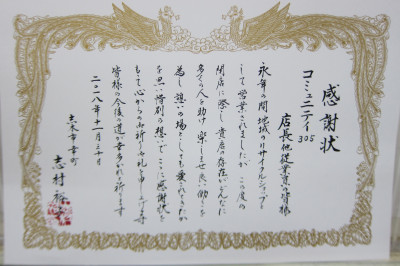 感謝状
コミュニティ305
店長他従業員の皆様
永年の間地域のリサイクルショップと
して営業されましたが この度の
閉店に際し貴店の存在がどんなに
多くの人を助け楽しませ良い働きを
為し憩いの場としても愛されてきたか
を思い惜別の想いでここに感謝状を
もって心からのお祈りとお礼を申し上げます
皆様の今後の道が幸多かれと祈ります
二〇一八年十一月三十日
志木市幸町
志村